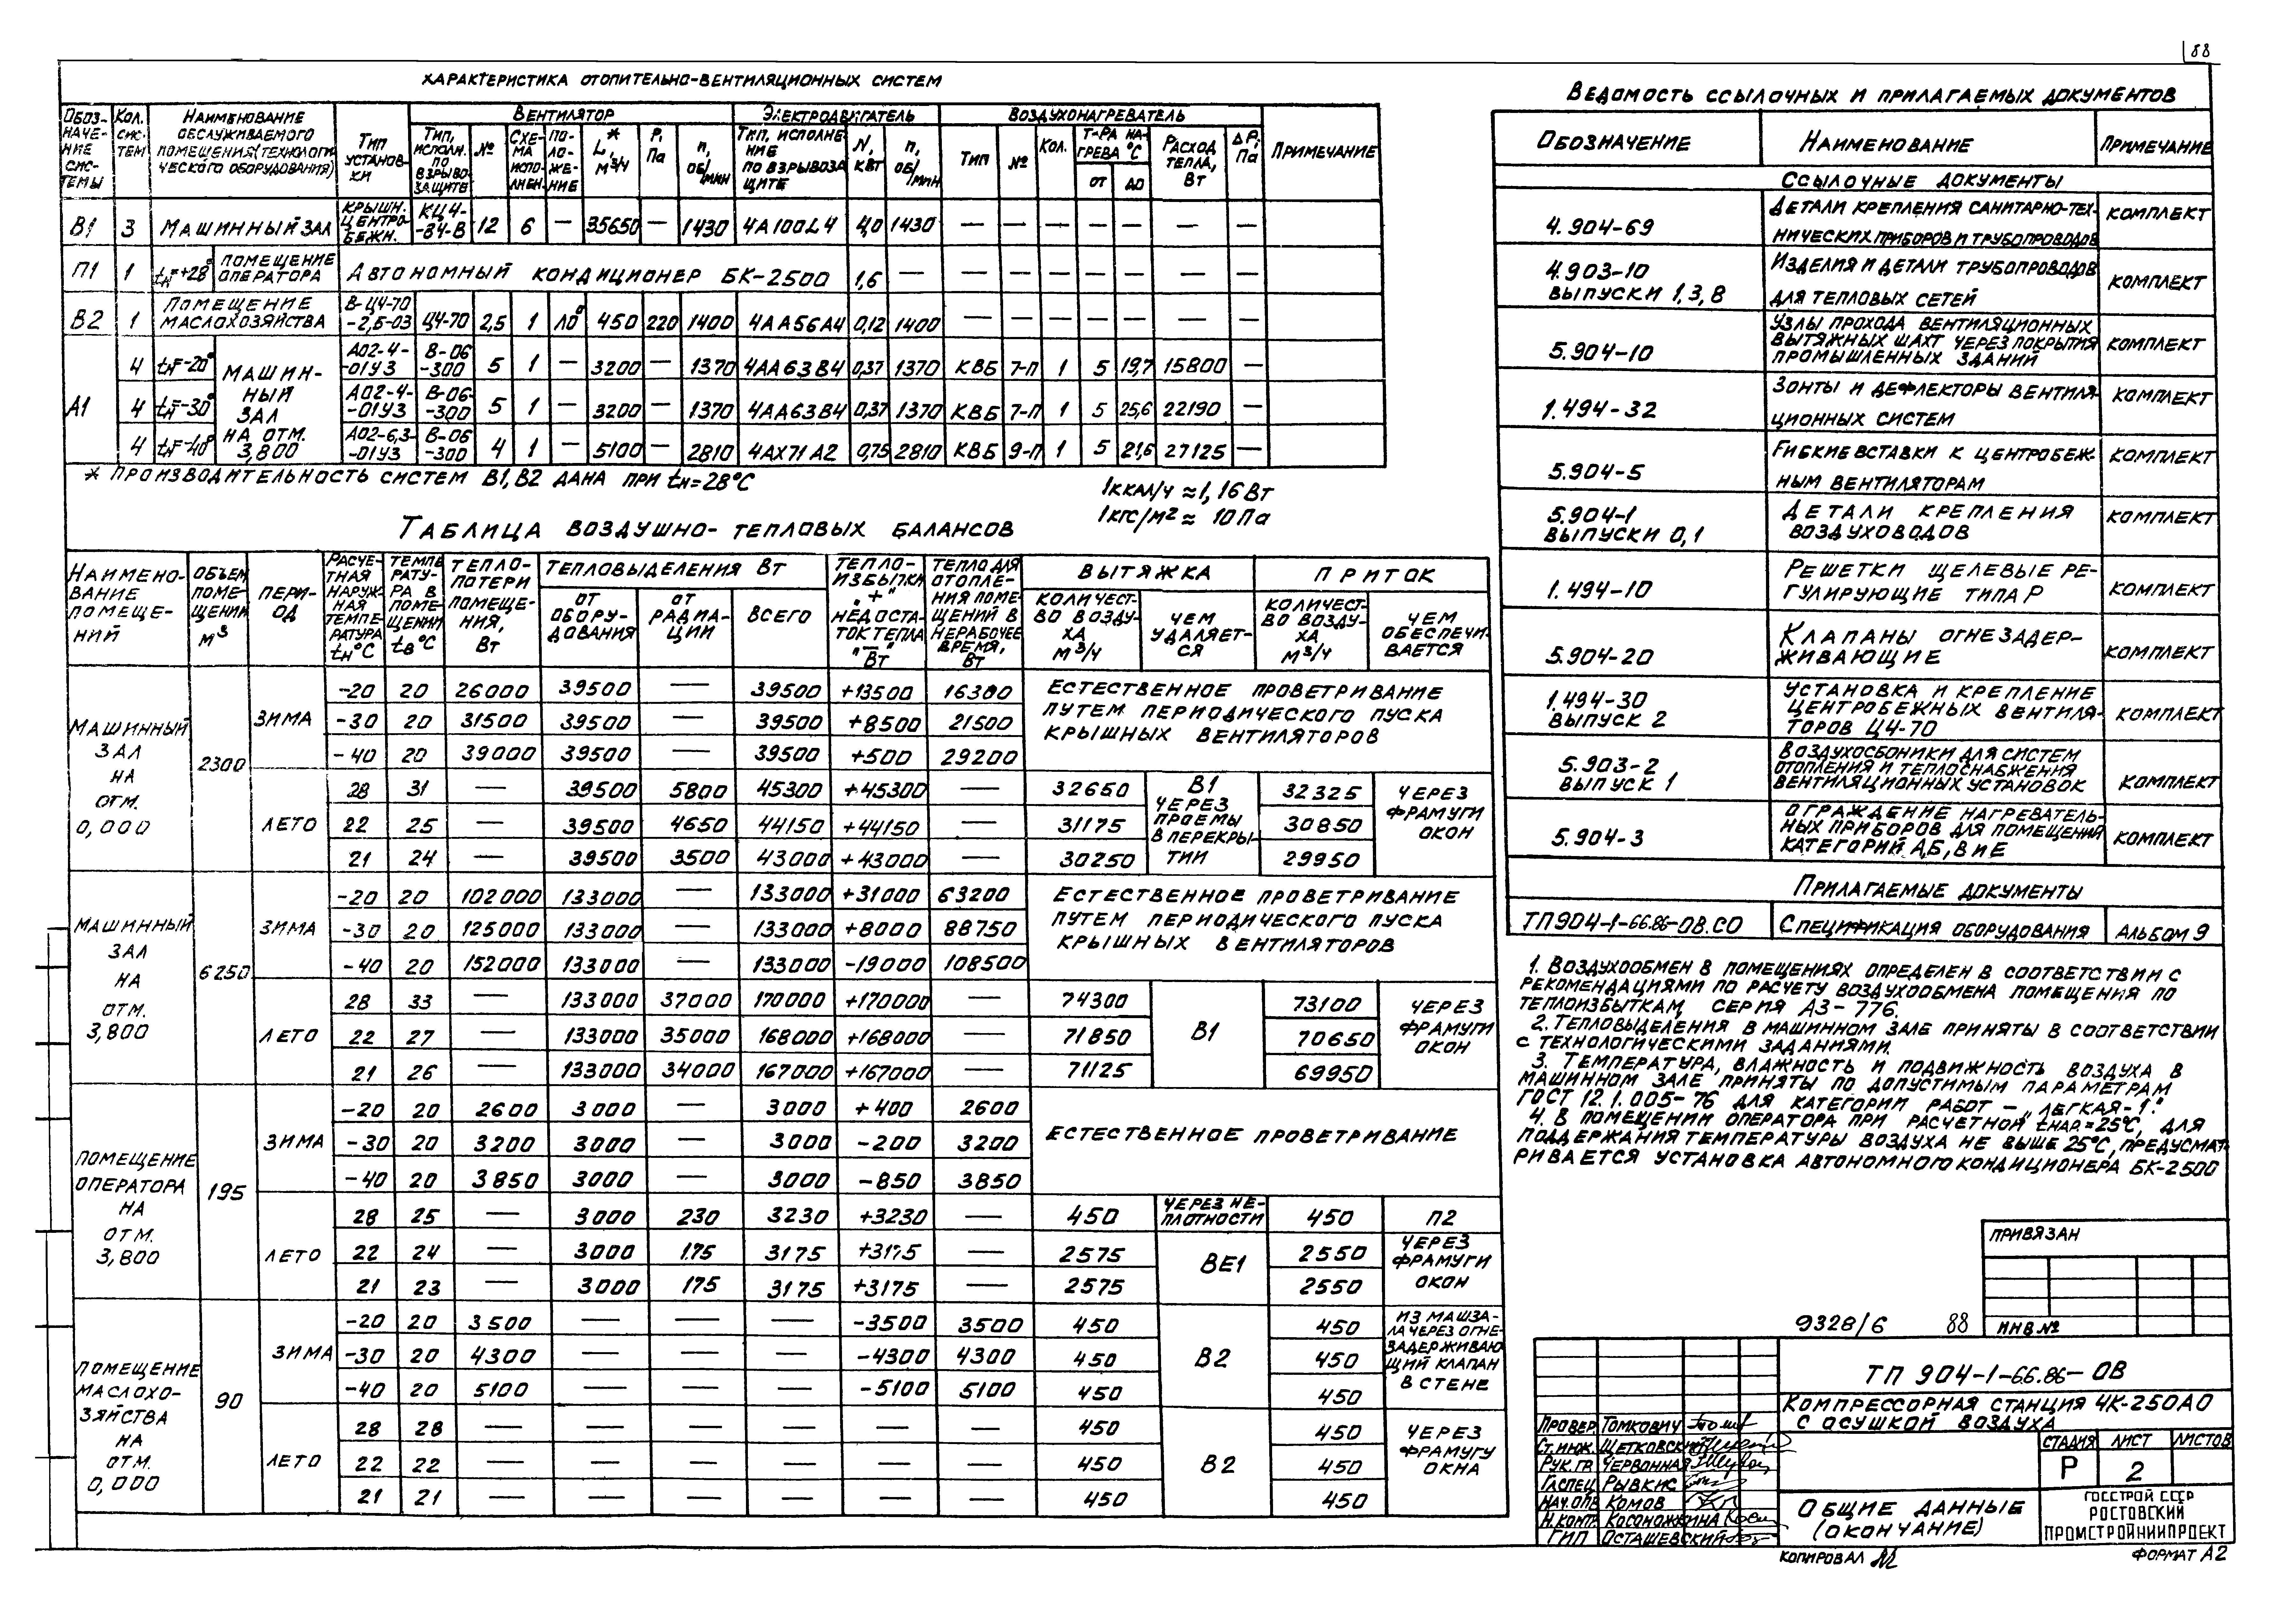 88
ХАРАКТЕРИСТИКА ОТОПИТЕЛЬНО-ВЕНТИЛЯЦИОННЫХ СИСТЕМ
ОБОЗ-НАЧЕ-НИЕ СИС-ТЕМЫ | КОЛ. СИС-ТЕМ | НАИМЕНОВАНИЕ ОБСЛУЖИВАЕМОГО ПОМЕЩЕНИЯ (ТЕХНОЛОГИ ЧЕСКОГО ОБОРУДОВАНИЯ) | ТИП УСТАНОВ-КИ | ВЕНТИЛЯТОР | ЭЛЕКТРОДВИГАТЕЛЬ | ВОЗДУХОНАГРЕВАТЕЛЬ | ПРИМЕЧАНИЕ
ТИП, ИСПОЛН. ПО ВЗРЫВО ЗАЩИТЕ | № | СХЕ-МА ИСПО-ЛНЕН. | ПО-ЛО-ЖЕ-НИЕ | L,* М³/Ч | Р, Па | n, ОБ/МИН | ТИП, ИСПОЛНЕ НИЕ ПО ВЗРЫВОЗА ЩИТЕ | N, КВТ | n, ОБ/МИН | ТИП | № | КОЛ. | Т-РА НА-ГРЕВА °С ОТ ДО | РАСХОД ТЕПЛА, ВТ | ΔР, Па
В1 3 МАШИННЫЙ ЗАЛ КРЫШН. ЦЕНТРО-БЕЖН. КЦ4-84-В 12 6 — 35650 — 1430 4А100L4 4,0 1430 — — — — — — —
П1 1 tн=+28° ПОМЕЩЕНИЕ ОПЕРАТОРА АВТОНОМНЫЙ КОНДИЦИОНЕР БК-2500 1,6 — — — — — — — —
В2 1 ПОМЕЩЕНИЕ МАСЛОХОЗЯЙСТВА В-Ц4-70-2,5-03 Ц4-70 2,5 1 Л0° 450 220 1400 4АА56А4 0,12 1400 — — — — — — —
А1 МАШИН-НЫЙ ЗАЛ НА ОТМ. 3,800
4 tн=-20° А02-4-01У3 В-06-300 5 1 — 3200 — 1370 4АА63В4 0,37 1370 КВБ 7-П 1 5 19,7 15800 —
4 tн=-30° А02-4-01У3 В-06-300 5 1 — 3200 — 1370 4АА63В4 0,37 1370 КВБ 7-П 1 5 25,6 22190 —
4 tн=-40° А02-6,3-01У3 В-06-300 4 1 — 5100 — 2810 4АХ71А2 0,75 2810 КВБ 9-П 1 5 21,6 27125 —
* ПРОИЗВОДИТЕЛЬНОСТЬ СИСТЕМ В1, В2 ДАНА ПРИ tн=28°С
1ККАЛ/Ч ≈ 1,16 ВТ
1КГС/М² ≈ 10 Па
ТАБЛИЦА ВОЗДУШНО-ТЕПЛОВЫХ БАЛАНСОВ
НАИМЕНО-ВАНИЕ ПОМЕЩЕ-НИЙ | ОБЪЕМ ПОМЕ-ЩЕНИЙ М³ | ПЕРИ-ОД | РАСЧЕ-ТНАЯ НАРУЖ-НАЯ ТЕМПЕ-РАТУРА tн°С | ТЕМПЕ РАТУ-РА В ПОМЕ-ЩЕНИИ tв°С | ТЕПЛО-ПОТЕРИ ПОМЕЩЕ-НИЯ, ВТ | ТЕПЛОВЫДЕЛЕНИЯ ВТ | ТЕПЛО-ИЗБЫТКИ „+" НЕДОСТА-ТОК ТЕПЛА „—" ВТ | ТЕПЛО ДЛЯ ОТОПЛЕ-НИЯ ПОМЕ-ЩЕНИЙ В НЕРАБОЧЕЕ ВРЕМЯ, ВТ | ВЫТЯЖКА | ПРИТОК
ОТ ОБОРУ-ДОВАНИЯ | ОТ РАДИА-ЦИИ | ВСЕГО | КОЛИЧЕСТ-ВО ВОЗДУ-ХА М³/Ч | ЧЕМ УДАЛЯЕТ-СЯ | КОЛИЧЕСТ-ВО ВОЗДУ-ХА М³/Ч | ЧЕМ ОБЕСПЕЧИ-ВАЕТСЯ
МАШИННЫЙ ЗАЛ НА ОТМ. 0,000 2300
ЗИМА
-20 20 26000 39500 — 39500 +13500 16300
-30 20 31500 39500 — 39500 +8500 21500
-40 20 39000 39500 — 39500 +500 29200
ЕСТЕСТВЕННОЕ ПРОВЕТРИВАНИЕ ПУТЕМ ПЕРИОДИЧЕСКОГО ПУСКА КРЫШНЫХ ВЕНТИЛЯТОРОВ
ЛЕТО
28 31 — 39500 5800 45300 +45300 — 32650 32325
22 25 — 39500 4650 44150 +44150 — 31175 30850
21 24 — 39500 3500 43000 +43000 — 30250 29950
В1 ЧЕРЕЗ ПРОЕМЫ В ПЕРЕКРЫ-ТИИ
ЧЕРЕЗ ФРАМУГИ ОКОН
МАШИННЫЙ ЗАЛ НА ОТМ. 3,800 6250
ЗИМА
-20 20 102000 133000 — 133000 +31000 63200
-30 20 125000 133000 — 133000 +8000 88750
-40 20 152000 133000 — 133000 -19000 108500
ЕСТЕСТВЕННОЕ ПРОВЕТРИВАНИЕ ПУТЕМ ПЕРИОДИЧЕСКОГО ПУСКА КРЫШНЫХ ВЕНТИЛЯТОРОВ
ЛЕТО
28 33 — 133000 37000 170000 +170000 — 74300 73100
22 27 — 133000 35000 168000 +168000 — 71850 70650
21 26 — 133000 34000 167000 +167000 — 71125 69950
В1
ЧЕРЕЗ ФРАМУГИ ОКОН
ПОМЕЩЕНИЕ ОПЕРАТОРА НА ОТМ. 3,800 195
ЗИМА
-20 20 2600 3000 — 3000 +400 2600
-30 20 3200 3000 — 3000 -200 3200
-40 20 3850 3000 — 3000 -850 3850
ЕСТЕСТВЕННОЕ ПРОВЕТРИВАНИЕ
ЛЕТО
28 25 — 3000 230 3230 +3230 — 450 ЧЕРЕЗ НЕ-ПЛОТНОСТИ 450 П2
22 24 — 3000 175 3175 +3175 — 2575 2550
21 23 — 3000 175 3175 +3175 — 2575 2550
ВЕ1
ЧЕРЕЗ ФРАМУГИ ОКОН
ПОМЕЩЕНИЕ МАСЛОХО-ЗЯЙСТВА НА ОТМ. 0,000 90
ЗИМА
-20 20 3500 — — — -3500 3500 450 450
-30 20 4300 — — — -4300 4300 450 450
-40 20 5100 — — — -5100 5100 450 450
В2
ИЗ МАШЗА-ЛА ЧЕРЕЗ ОГНЕ-ЗАДЕРЖИВАЮ-ЩИЙ КЛАПАН В СТЕНЕ
ЛЕТО
28 28 — — — — — — 450 450
22 22 — — — — — — 450 450
21 21 — — — — — — 450 450
В2
ЧЕРЕЗ ФРАМУГУ ОКНА
ВЕДОМОСТЬ ССЫЛОЧНЫХ И ПРИЛАГАЕМЫХ ДОКУМЕНТОВ
ОБОЗНАЧЕНИЕ | НАИМЕНОВАНИЕ | ПРИМЕЧАНИЕ
ССЫЛОЧНЫЕ ДОКУМЕНТЫ
4.904-69 ДЕТАЛИ КРЕПЛЕНИЯ САНИТАРНО-ТЕХ-НИЧЕСКИХ ПРИБОРОВ И ТРУБОПРОВОДОВ КОМПЛЕКТ
4.903-10 ВЫПУСКИ 1,3,8 ИЗДЕЛИЯ И ДЕТАЛИ ТРУБОПРОВОДОВ ДЛЯ ТЕПЛОВЫХ СЕТЕЙ КОМПЛЕКТ
5.904-10 УЗЛЫ ПРОХОДА ВЕНТИЛЯЦИОННЫХ ВЫТЯЖНЫХ ШАХТ ЧЕРЕЗ ПОКРЫТИЯ ПРОМЫШЛЕННЫХ ЗДАНИЙ КОМПЛЕКТ
1.494-32 ЗОНТЫ И ДЕФЛЕКТОРЫ ВЕНТИЛЯ-ЦИОННЫХ СИСТЕМ КОМПЛЕКТ
5.904-5 ГИБКИЕ ВСТАВКИ К ЦЕНТРОБЕЖ-НЫМ ВЕНТИЛЯТОРАМ КОМПЛЕКТ
5.904-1 ВЫПУСКИ 0,1 ДЕТАЛИ КРЕПЛЕНИЯ ВОЗДУХОВОДОВ КОМПЛЕКТ
1.494-10 РЕШЕТКИ ЩЕЛЕВЫЕ РЕ-ГУЛИРУЮЩИЕ ТИПА Р КОМПЛЕКТ
5.904-20 КЛАПАНЫ ОГНЕЗАДЕР-ЖИВАЮЩИЕ КОМПЛЕКТ
1.494-30 ВЫПУСК 2 УСТАНОВКА И КРЕПЛЕНИЕ ЦЕНТРОБЕЖНЫХ ВЕНТИЛЯ-ТОРОВ Ц4-70 КОМПЛЕКТ
5.903-2 ВЫПУСК 1 ВОЗДУХОСБОНИКИ ДЛЯ СИСТЕМ ОТОПЛЕНИЯ И ТЕПЛОСНАБЖЕНИЯ ВЕНТИЛЯЦИОННЫХ УСТАНОВОК КОМПЛЕКТ
5.904-3 ОГРАЖДЕНИЕ НАГРЕВАТЕЛЬ-НЫХ ПРИБОРОВ ДЛЯ ПОМЕЩЕНИЙ КАТЕГОРИЙ А,Б,В И Е КОМПЛЕКТ
ПРИЛАГАЕМЫЕ ДОКУМЕНТЫ
ТП904-1-66.86-ОВ.СО СПЕЦИФИКАЦИЯ ОБОРУДОВАНИЯ АЛЬБОМ 9
1. ВОЗДУХООБМЕН В ПОМЕЩЕНИЯХ ОПРЕДЕЛЕН В СООТВЕТСТВИИ С
РЕКОМЕНДАЦИЯМИ ПО РАСЧЕТУ ВОЗДУХООБМЕНА ПОМЕЩЕНИЯ ПО
ТЕПЛОИЗБЫТКАМ, СЕРИЯ АЗ-776.
2. ТЕПЛОВЫДЕЛЕНИЯ В МАШИННОМ ЗАЛЕ ПРИНЯТЫ В СООТВЕТСТВИИ
С ТЕХНОЛОГИЧЕСКИМИ ЗАДАНИЯМИ.
3. ТЕМПЕРАТУРА, ВЛАЖНОСТЬ И ПОДВИЖНОСТЬ ВОЗДУХА В
МАШИННОМ ЗАЛЕ ПРИНЯТЫ ПО ДОПУСТИМЫМ ПАРАМЕТРАМ
ГОСТ 12.1.005-76 ДЛЯ КАТЕГОРИИ РАБОТ – „ЛЕГКАЯ-1".
4. В ПОМЕЩЕНИИ ОПЕРАТОРА ПРИ РАСЧЕТНОЙ tНАР.=25°С, ДЛЯ
ПОДДЕРЖАНИЯ ТЕМПЕРАТУРЫ ВОЗДУХА НЕ ВЫШЕ 25°С, ПРЕДУСМАТ-
РИВАЕТСЯ УСТАНОВКА АВТОНОМНОГО КОНДИЦИОНЕРА БК-2500
ПРИВЯЗАН
ИНВ №
9328/6 88
ТП 904-1-66.86-ОВ
КОМПРЕССОРНАЯ СТАНЦИЯ 4К-250АО
С ОСУШКОЙ ВОЗДУХА
ПРОВЕР. ТОМКОВИЧ
СТ.ИНЖ. ЩЕТКОВСКИЙ
РУК.ГР. ЧЕРВОННАЯ
ГЛ.СПЕЦ РЫВКИС
НАЧ.ОПВ КОМОВ
Н.КОНТ. КОСОНОЖКИНА
ГИП ОСТАШЕВСКИЙ
СТАДИЯ ЛИСТ ЛИСТОВ
Р 2
ОБЩИЕ ДАННЫЕ
(ОКОНЧАНИЕ)
ГОССТРОЙ СССР
РОСТОВСКИЙ
ПРОМСТРОЙНИИПРОЕКТ
КОПИРОВАЛ
ФОРМАТ А2